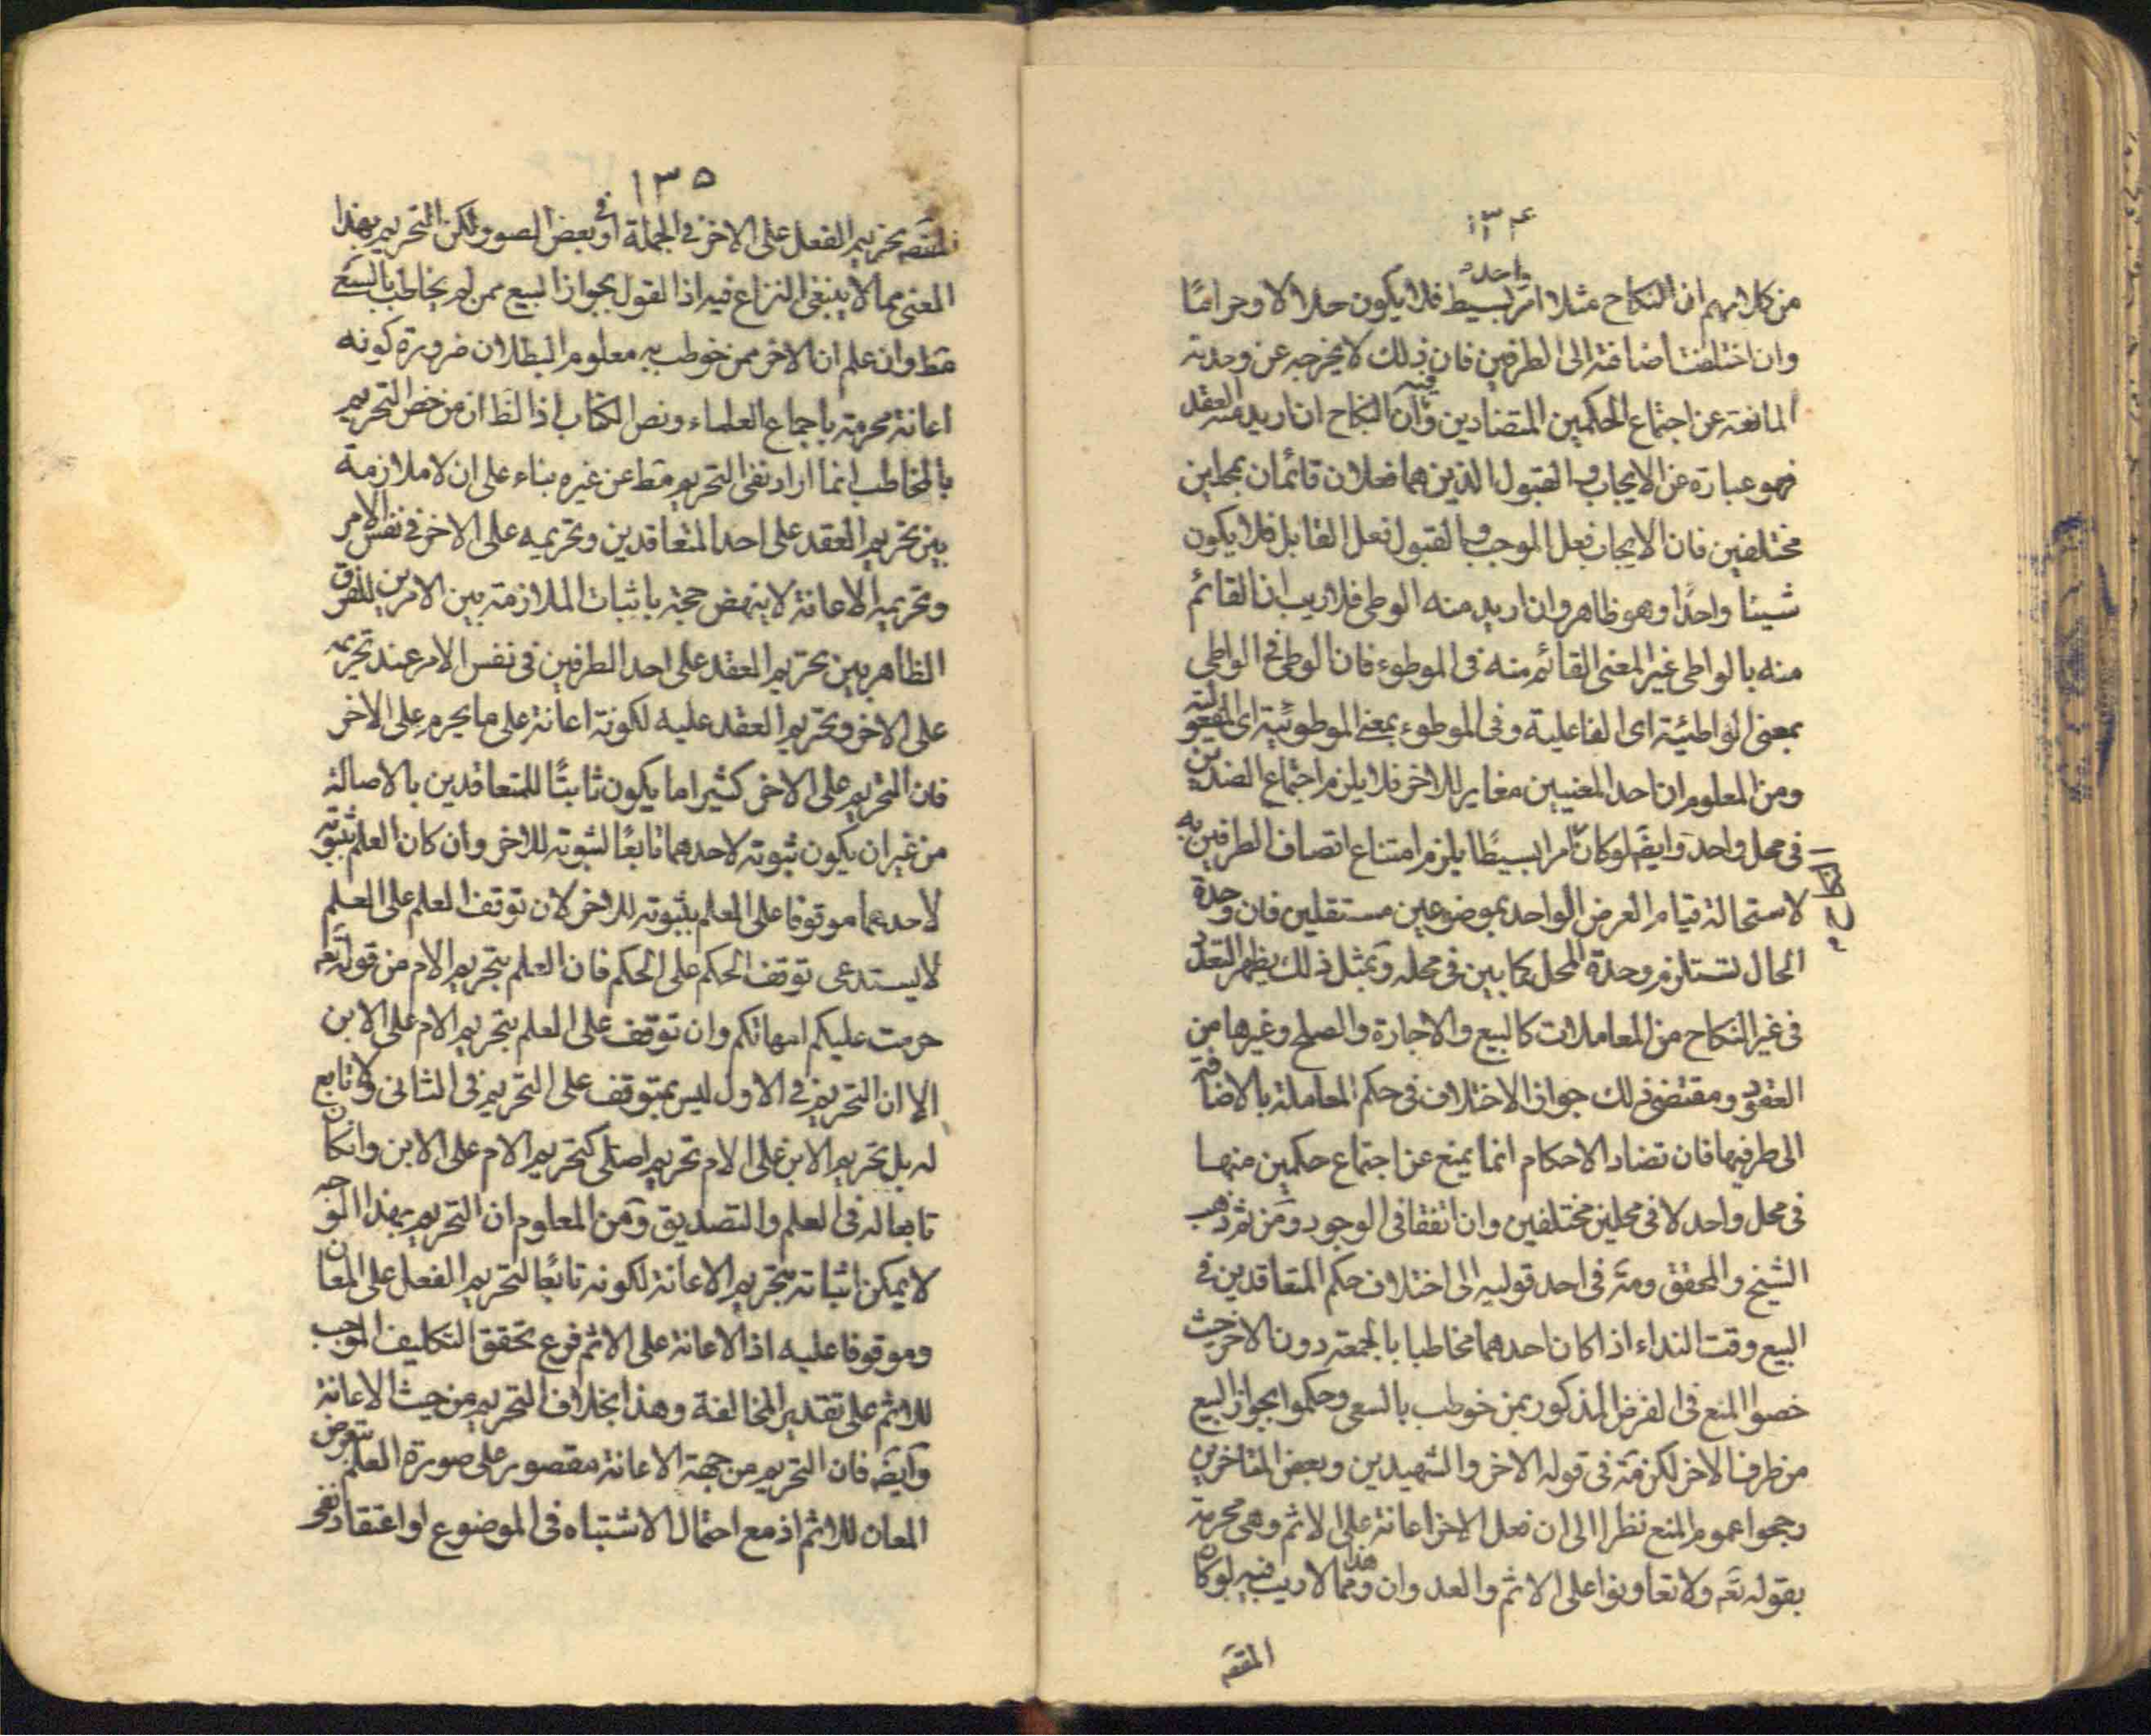 ١٣٤
من كلامهم ان النكاح مثلا امر واحد بسيط فلا يكون حلالا وحراما
وان اختلفت اضافته الى الطرفين فان ذلك لا يخرجه عن وحدته
المانعة عن اجتماع الحكمين المتضادين وفيه ان النكاح ان اريد منه العقد
فهو عبارة عن الايجاب والقبول الذين هما فعلان قائمان بمحلين
مختلفين فان الايجاب فعل الموجب والقبول فعل القابل فلا يكون
شيئا واحدا وهو ظاهر وان اريد منه الوطى فلا ريب ان القائم
منه بالواطى غير المعنى القائم منه فى الموطوء فان الوطى فى الواطى
بمعنى الواطئية اى الفاعلية وفى الموطوء بمعنى الموطوئية اى المفعولية
ومن المعلوم ان احد المعنيين مغاير للاخر فلا يلزم اجتماع الضدين
فى محل واحد وايضَ لو كان امرا بسيطا يلزم امتناع اتصاف الطرفين به
لاستحالة قيام العرض الواحد بموضوعين مستقلين فان وحدة
الحال تستلزم وحدة المحل كما بين فى محله وبمثل ذلك يظهر التعدد
فى غير النكاح من المعاملات كالبيع والاجارة والصلح وغيرها من
العقود ومقتضى ذلك جواز الاختلاف فى حكم المعاملة بالاضافة
الى طرفيها فان تضاد الاحكام انما يمنع عن اجتماع حكمين منها
فى محل واحد لا فى محلين مختلفين وان اتفقا فى الوجود ومن ثم ذهب
الشيخ والمحقق ومَه فى احد قوليه الى اختلاف حكم المتعاقدين فى
البيع وقت النداء اذا كان احدهما مخاطبا بالجمعة دون الاخر حيث
خصوا المنع فى الفرض المذكور بمن خوطب بالسعى وحكموا بجواز البيع
من طرف الاخر لكن مَه فى قوله الاخر والشهيدين وبعض المتاخرين
رجحوا عموم المنع نظرا الى ان فعل الاخر اعانة على الاثم وهى محرمة
بقوله تعَه ولا تعاونوا على الاثم والعدوان وهذا مما لا ريب فيه لو كان
المقصَه
١٣٥
المقصَه تحريم الفعل على الاخر فى الجملة او فى بعض الصور ولكن التحريم بهذا
المعنى مما لا ينبغى النزاع فيه اذ القول بجواز البيع ممن لم يخاطب بالسعى
مطَ وان علم ان الاخر ممن خوطب به معلوم البطلان ضرورة كونه
اعانة محرمة باجماع العلماء ونص الكتاب اذ الظَ ان من خص التحريم
بالمخاطب انما اراد نفى التحريم مطَ عن غيره بناء على ان لا ملازمة
بين تحريم العقد على احد المتعاقدين وتحريمه على الاخر فى نفس الامر
وتحريم الاعانة لا ينهض حجة باثبات الملازمة بين الامرين للفرق
الظاهر بين تحريم العقد على احد الطرفين فى نفس الامر عند تحريمه
على الاخر وتحريم العقد عليه لكونه اعانة على ما يحرم على الاخر
فان التحريم على الاخر كثيرا ما يكون ثابتا للمتعاقدين بالاصالة
من غير ان يكون ثبوته لاحدهما تابعا لثبوته للاخر وان كان العلم بثبوته
لاحدهما موقوفا على العلم بثبوته للاخر لان توقف العلم على العلم
لا يستدعى توقف الحكم على الحكم فان العلم بتحريم الام من قوله تعَه
حرمت عليكم امهاتكم وان توقف على العلم بتحريم الام على الابن
الا ان التحريم فى الاول ليس بمتوقف على التحريم فى الثانى ولا تابع
له بل تحريم الابن على الام تحريم اصلى كتحريم الام على الابن وان كان
تابعا له فى العلم والتصديق ومن المعلوم ان التحريم بهذا الوجه
لا يمكن اثباته بتحريم الاعانة لكونه تابعا لتحريم الفعل على المعان
وموقوفا عليه اذ الاعانة على الاثم فرع تحقق التكليف الموجب
للاثم على تقدير المخالفة وهذا بخلاف التحريم من حيث الاعانة
وايضَ فان التحريم من جهة الاعانة مقصور على صورة العلم
المعان للاثم اذ مع احتمال الاشتباه فى الموضوع او اعتقاد